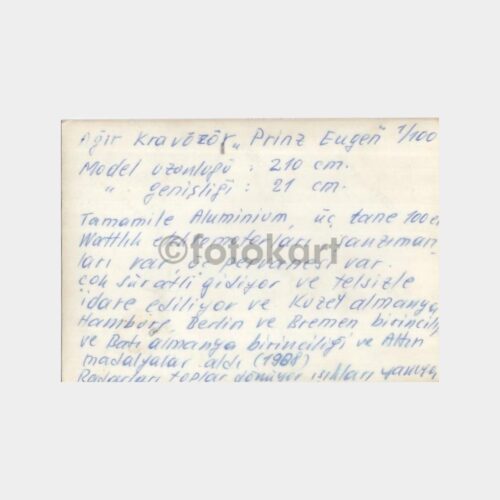 Ağır Kravözör „Prinz Eugen" 1/100
Model uzunluğu : 210 cm.
" genişliği : 21 cm.
Tamamile Aluminium, üç tane 100er
Wattlık elektromotorları, şanzıman
ları var, 3 pervanesi var.
©fotokart
çok süratli gidiyor ve telsizle
idare ediliyor ve Kuzey almanya
Hamburg, Berlin ve Bremen birincili
ve Batı almanya birinciliği ve Altın
madalyalar aldı (1968)
Radarları toplar dönüyor ışıkları yanıyo